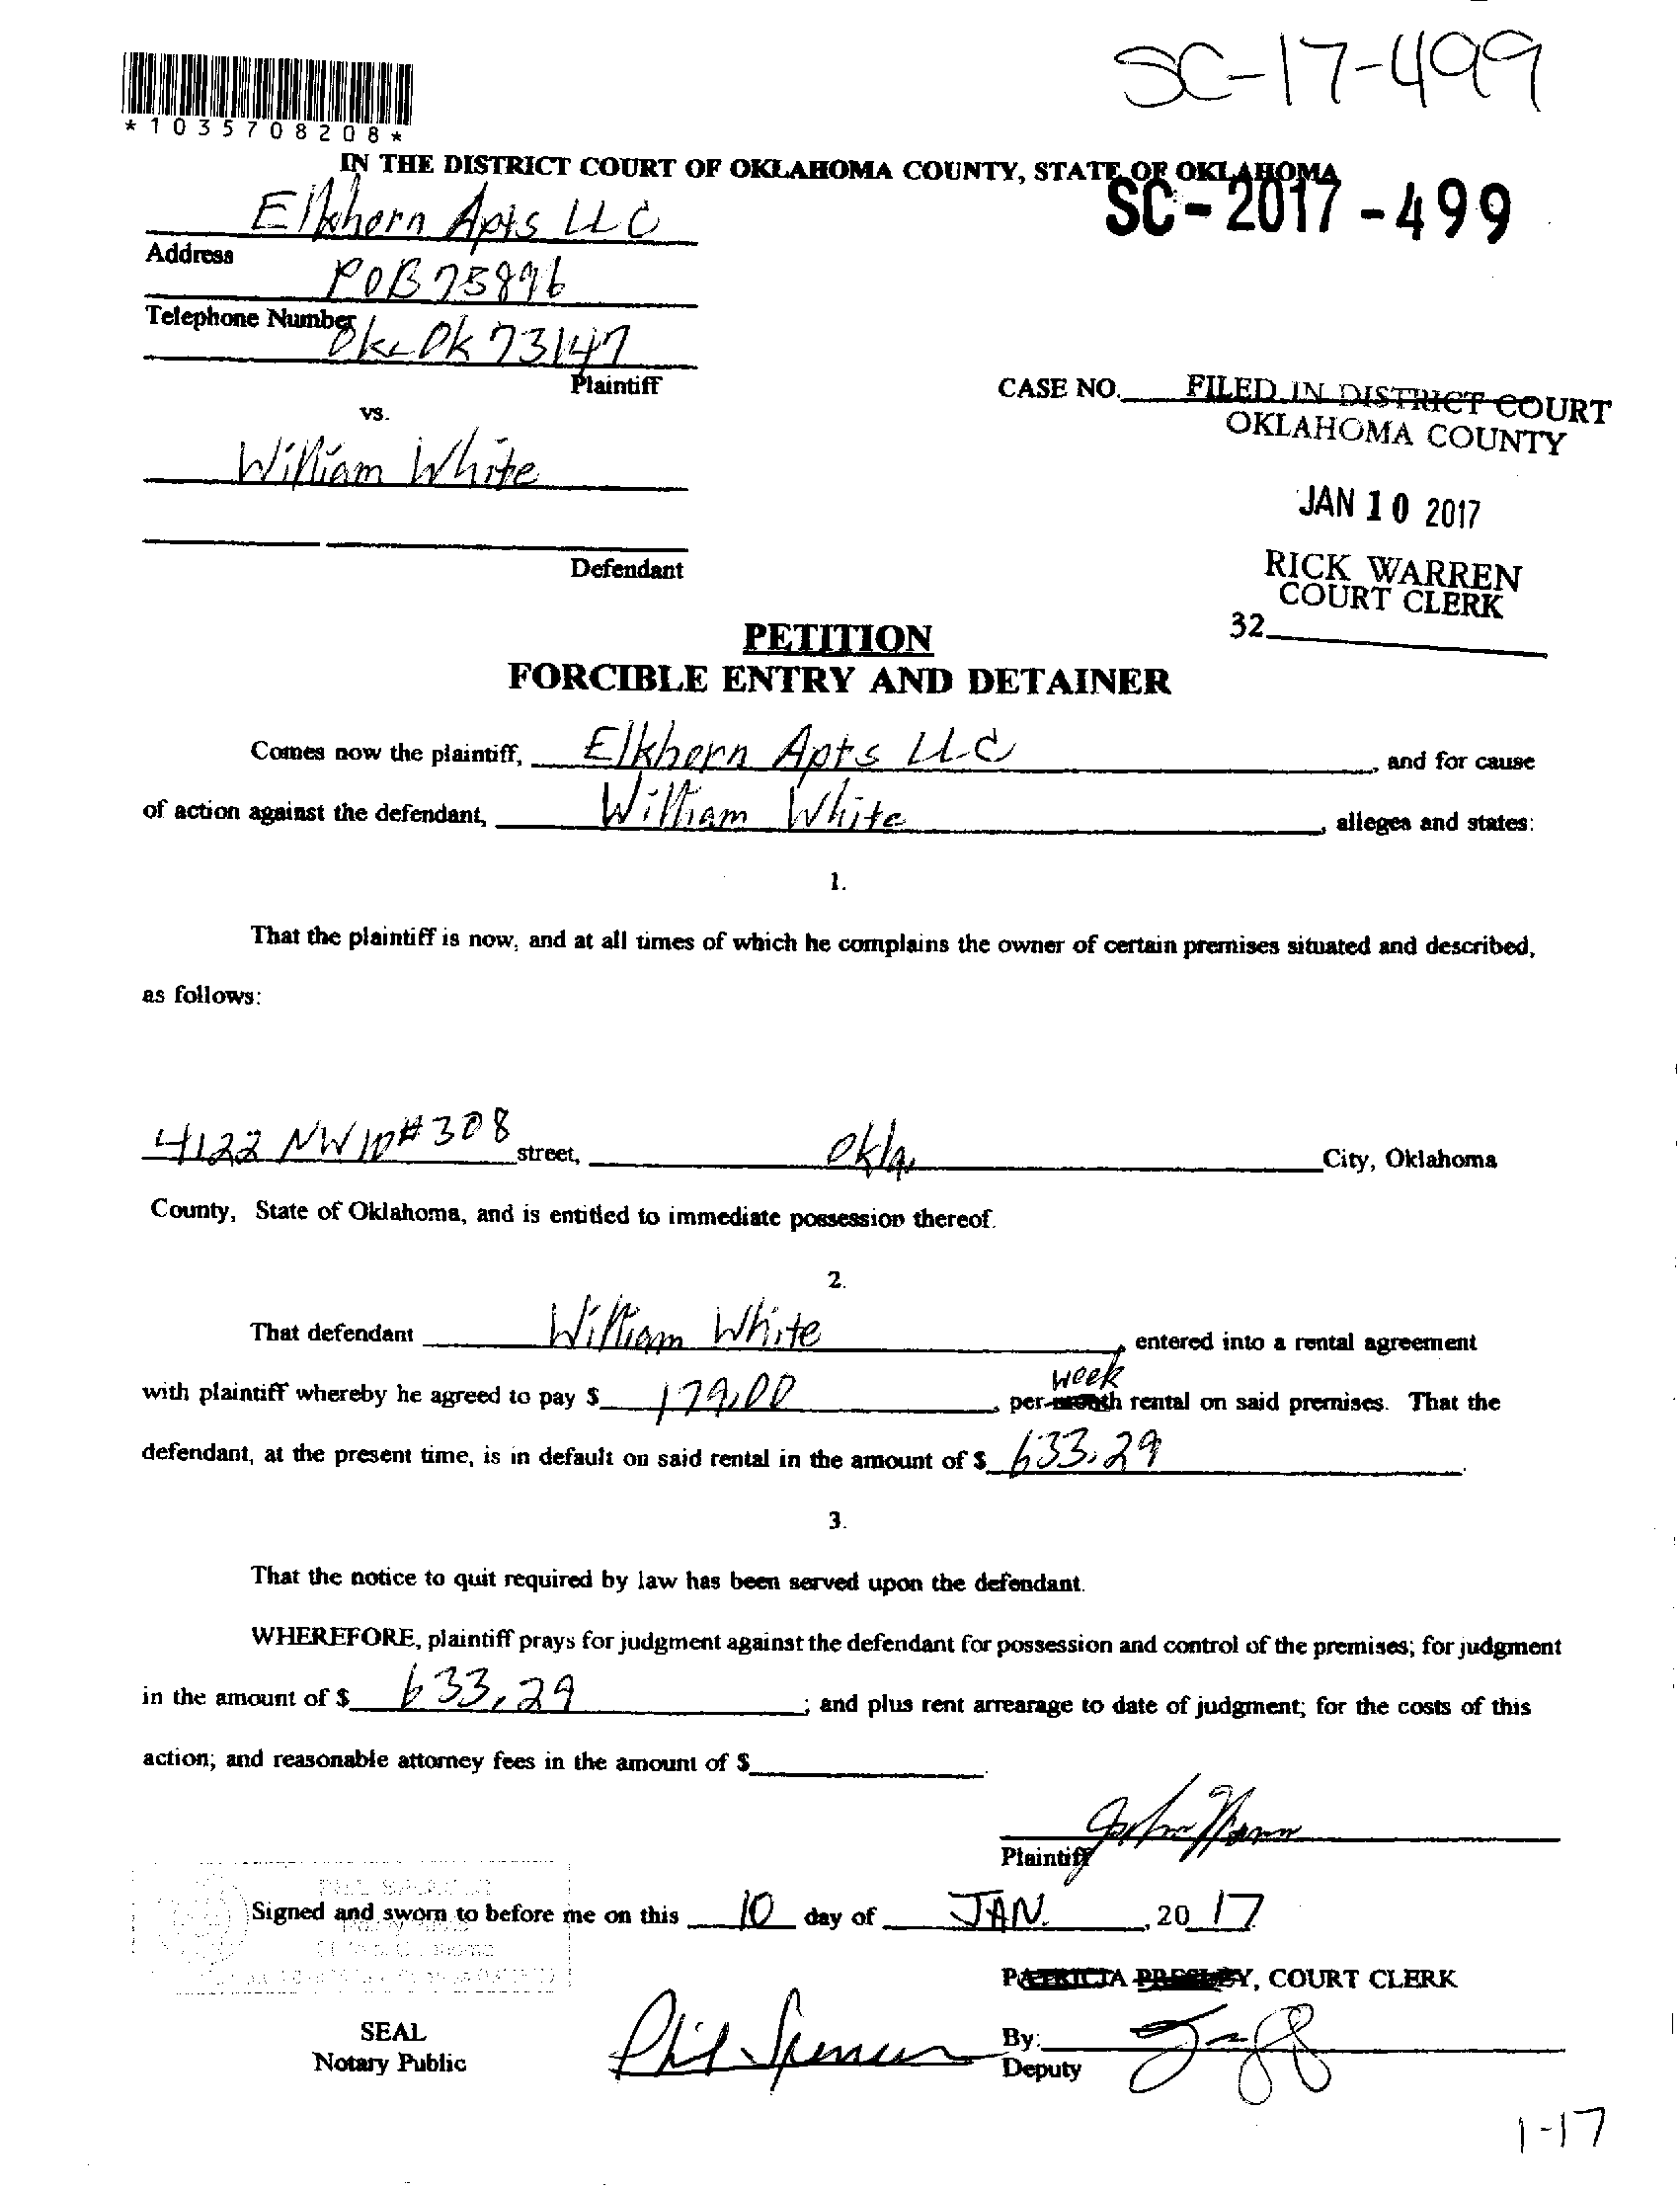 SC-17-499
*1035708208*
IN THE DISTRICT COURT OF OKLAHOMA COUNTY, STATE OF OKLAHOMA
SC-2017-499
Elkhorn Apts LLC
Address
POB 75896
Telephone Number
Okc Ok 73147
Plaintiff
CASE NO.
FILED IN DISTRICT COURT
OKLAHOMA COUNTY
vs.
William White
JAN 10 2017
Defendant
RICK WARREN
COURT CLERK
32
PETITION
FORCIBLE ENTRY AND DETAINER
Comes now the plaintiff, Elkhorn Apts LLC and for cause
of action against the defendant, William White, alleges and states:
1.
That the plaintiff is now, and at all times of which he complains the owner of certain premises situated and described,
as follows:
4122 NW 10 #308 street, Okla. City, Oklahoma
County, State of Oklahoma, and is entitled to immediate possession thereof.
2.
That defendant William White, entered into a rental agreement
week
with plaintiff whereby he agreed to pay $ 179.00, per month rental on said premises. That the
defendant, at the present time, is in default on said rental in the amount of $ 633.29.
3.
That the notice to quit required by law has been served upon the defendant.
WHEREFORE, plaintiff prays for judgment against the defendant for possession and control of the premises; for judgment
in the amount of $ 633.29; and plus rent arrearage to date of judgment; for the costs of this
action; and reasonable attorney fees in the amount of $
Plaintiff
Signed and sworn to before me on this 10 day of JAN., 20 17
PATRICIA PRESLEY, COURT CLERK
SEAL
Notary Public
Phil Spencer
By:
Deputy
1-17